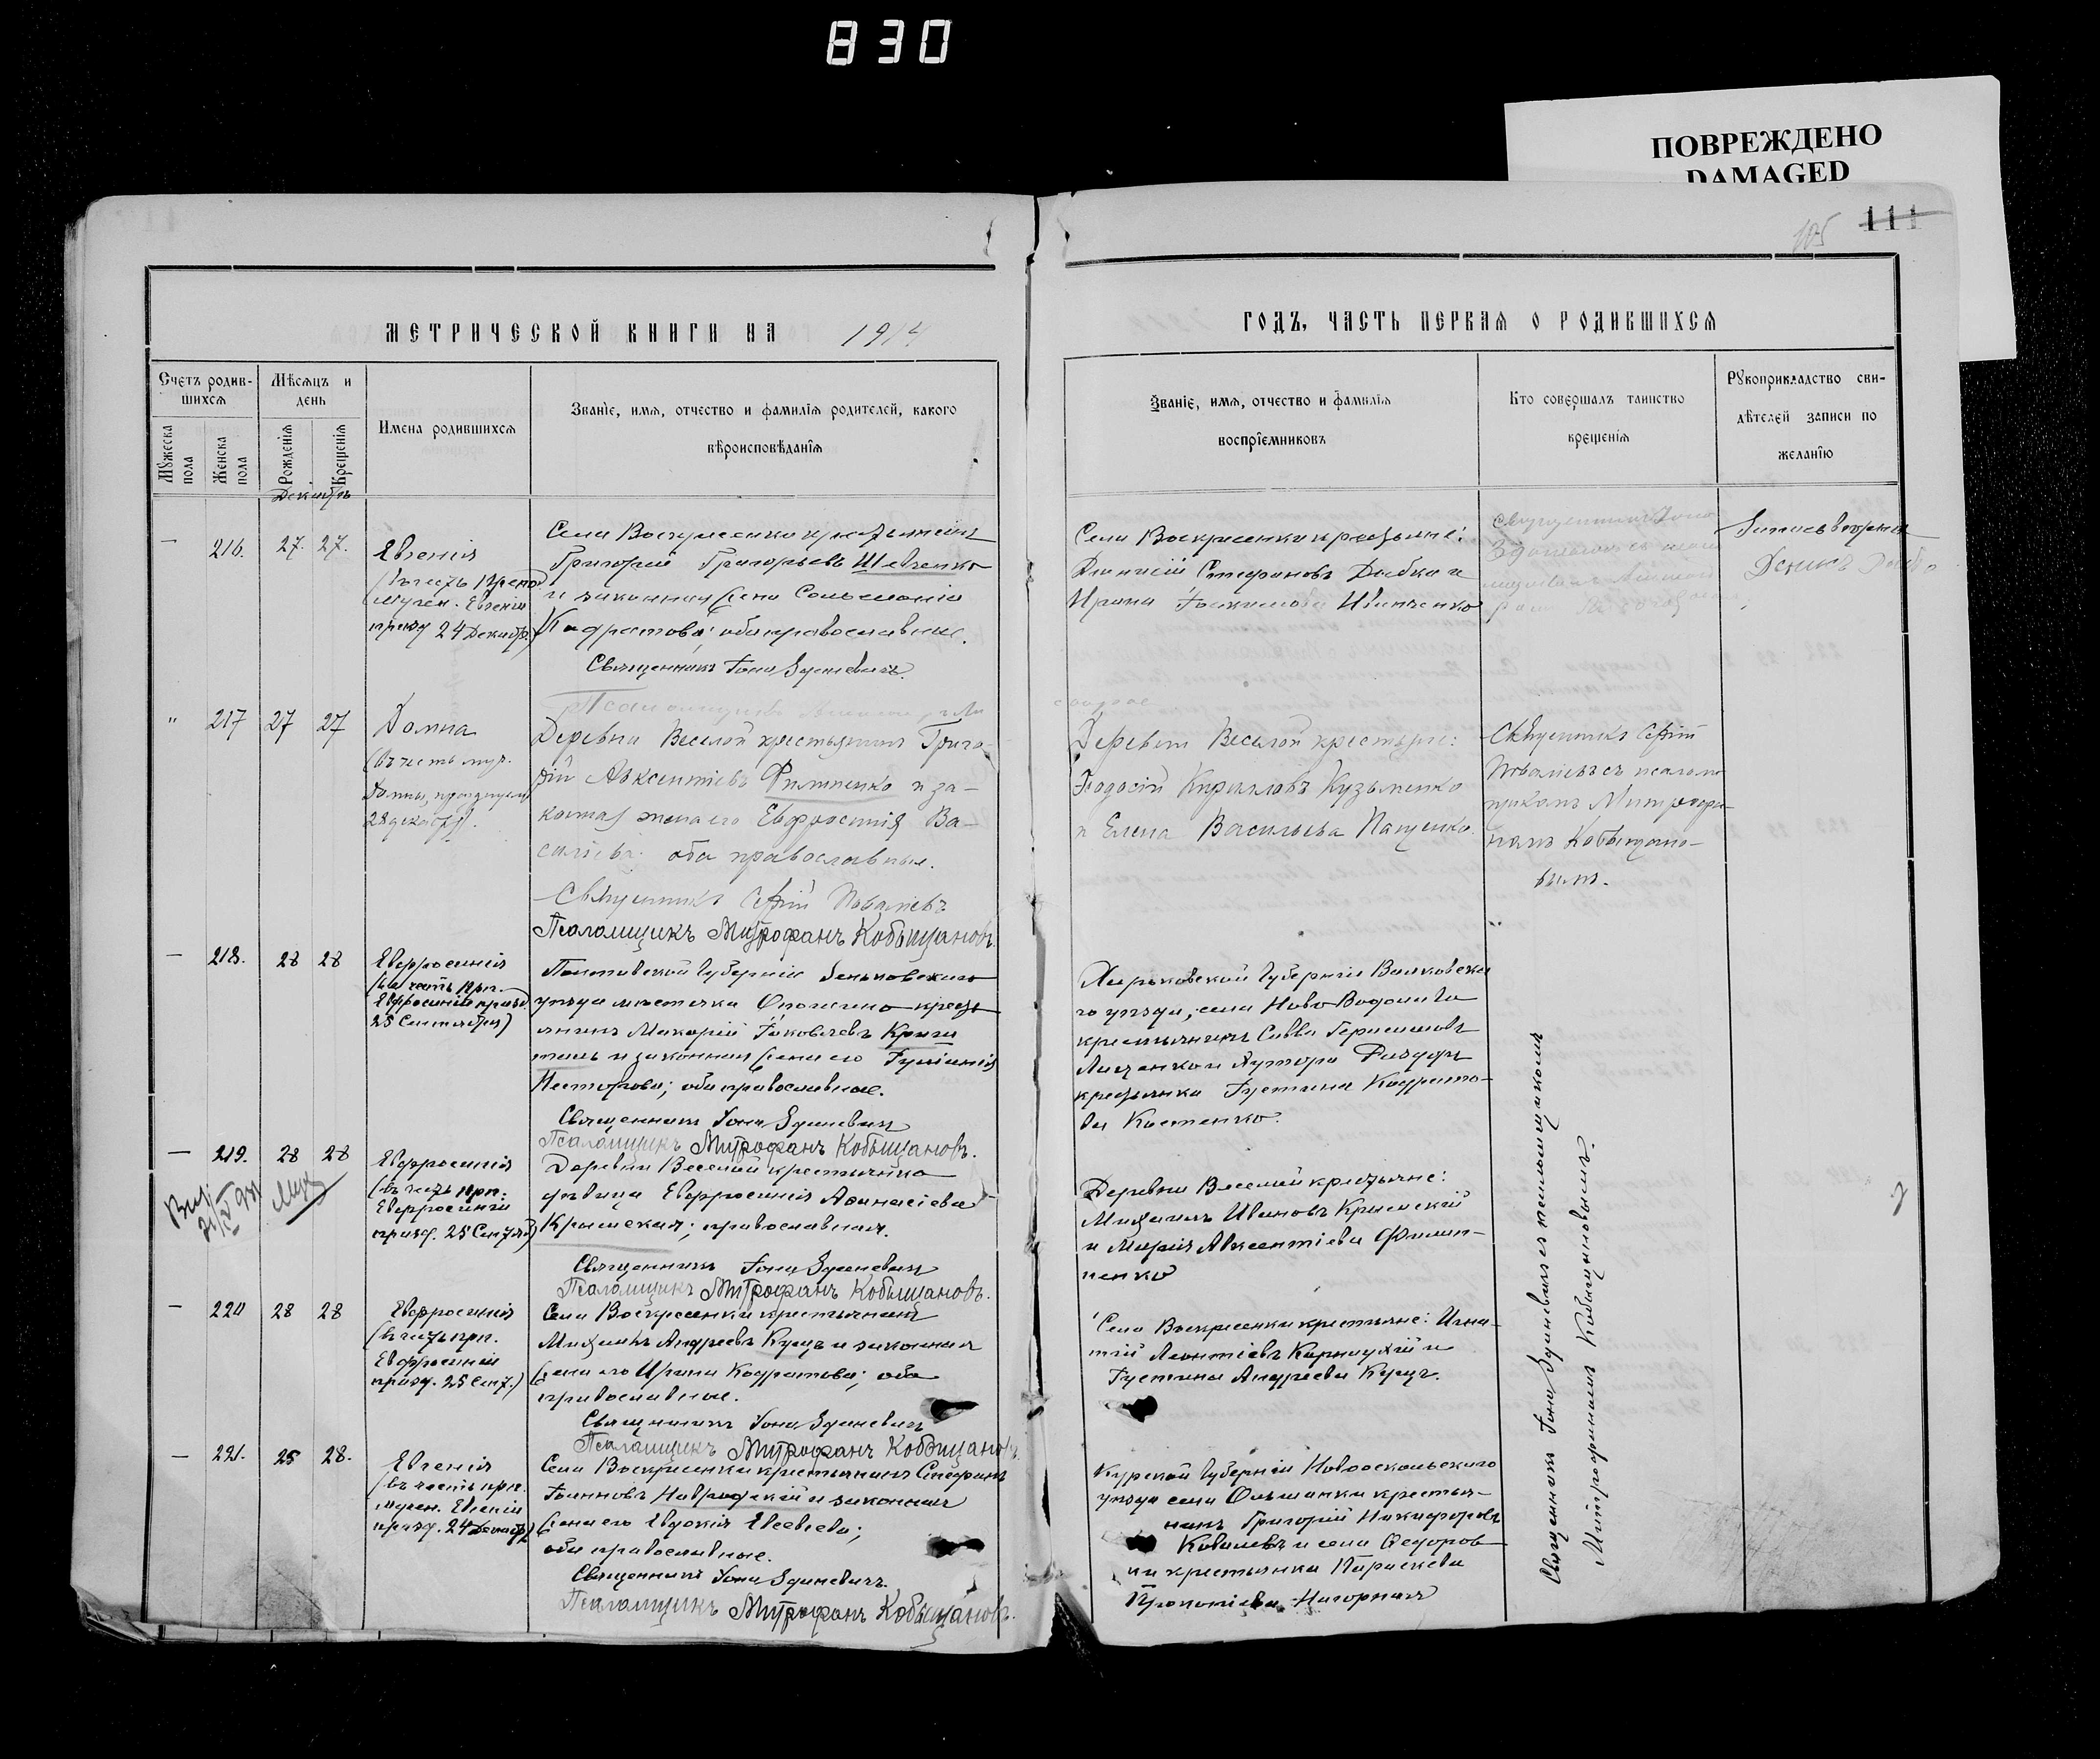 830
ПОВРЕЖДЕНО
DAMAGED
105 111
МЕТРИЧЕСКОЙ КНИГИ НА 1914
ГОДЪ, ЧАСТЬ ПЕРВАЯ О РОДИВШИХСЯ
Счетъ родив-
шихся
Мѣсяцъ и
день
Мужеска пола
Женска пола
Рожденія
Крещенія
Имена родившихся
Званіе, имя, отчество и фамилія родителей, какого
вѣроисповѣданія
Званіе, имя, отчество и фамилія
воспріемниковъ
Кто совершалъ таинство
крещенія
Рукоприкладство сви-
дѣтелей записи по
желанію
Декабрь
— 216. 27. 27.
Евгенія
(въ честь Препод.
Мучен. Евгеніи
празд 24 Декабр.)
Села Воскресенки крестьянинъ
Григорій Григорьевъ Шевченко
и законная жена
Кодратова; оба православные.
Священникъ Іона Здиневичъ.
Села Воскресенки крестьяне:
Діонисій Стефановъ Дыбка и
Ирина Іоакимова Иванченко
" 217 27 27
Домна
(въ честь муч.
Домны, празднуем
28 декабря).
Деревни Веселой крестьянинъ Григо-
рій Авксентіевъ Филипенко и за-
конная жена его Евфросинія Ва-
силіева оба православные.
Священникъ Сергій Поваліевъ
Псаломщикъ Митрофанъ Кобыщановъ.
Деревни Веселой крестьяне:
Феодосій Кирилловъ Кузьменко
и Елена Васильева Пащенко.
Священникъ Сергій
Поваліевъ съ псалом
щикомъ Митрофа-
номъ Кобыщано-
вымъ.
— 218. 28 28
Евфросинія
(въ честь Прп.
Евфросиніи празд.
25 Сентября)
Полтавской Губерніи Зеньковскаго
уѣзда мѣстечка Опошно кресть
янинъ Макарій Іаковлевъ
и законная жена его Іуліанія
Несторова; оба православные.
Священникъ Іона Здиневичъ
Псаломщикъ Митрофанъ Кобыщановъ.
Харьковской Губерніи Валковска
го уѣзда, села Ново Водолаги
крестьянинъ Савва Герасимовъ
крестьянка Іустина Кодрато-
ва Костенко.
— 219. 28 28
Евфросинія
(въ честь прп.
Евфросиніи
празд. 25 Сентяб)
Деревни Веселой крестьянка
дѣвица Евфросинія Афанасіева
Крымская; православная.
Священникъ Іона Здиневичъ
Псаломщикъ Митрофанъ Кобыщановъ.
Деревни Веселой крестьяне:
Михаилъ Ивановъ Крымскій
и Марія Авксентіева Филип-
пенко
— 220 28 28
Евфросинія
(въ честь прп.
Евфросиніи
празд. 25 Сент.)
Села Воскресенки крестьянинъ
Михаилъ Андреевъ Куцъ и законная
жена его Ирина Кодратова; оба
православные.
Священникъ Іона Здиневичъ
Псаломщикъ Митрофанъ Кобыщановъ.
Села Воскресенки крестьяне: Игна-
тій Леонтіевъ Карнаухій и
Іустина Андреева Куцъ.
— 221. 25 28.
Евгенія
(въ честь прп.
мучен. Евгеніи
празд. 24 Декабр)
Села Воскресенки крестьянинъ Стефанъ
Іоанновъ и законная
жена его Евдокія Евсевіева;
оба православные.
Священникъ Іона Здиневичъ.
Псаломщикъ Митрофанъ Кобыщановъ.
Курской Губерніи Новооскольскаго
уѣзда села Ольшанки крестья-
нинъ Григорій Никифоровъ
Ковалевъ и села Федоров-
ки крестьянка Параскева
Прокопіева Нагорная
Священникъ Іона Здиневичъ съ псаломщикомъ
Митрофаномъ Кобыщановымъ.